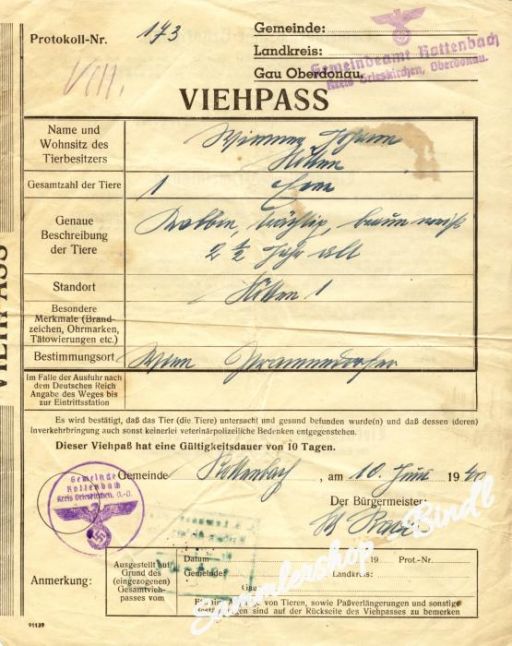 Protokoll-Nr. 173
Gemeinde:
Landkreis:
Gau Oberdonau.
Gemeindeamt Rottenbach
Kreis Grieskirchen, Oberdonau.
VIII.
VIEHPASS
VIEHPASS
Name und
Wohnsitz des
Tierbesitzers
Wimmer Johann
Gesamtzahl der Tiere 1
Genaue
Beschreibung
der Tiere
Kalbin, trächtig, braun weiß
2 ½ Jahr alt
Standort
Besondere
Merkmale (Brand-
zeichen, Ohrmarken,
Tätowierungen etc.)
Bestimmungsort
Im Falle der Ausfuhr nach
dem Deutschen Reich
Angabe des Weges bis
zur Eintrittsstation
Es wird bestätigt, daß das Tier (die Tiere) untersucht und gesund befunden wurde(n) und daß dessen (deren)
Inverkehrbringung auch sonst keinerlei veterinärpolizeiliche Bedenken entgegenstehen.
Dieser Viehpaß hat eine Gültigkeitsdauer von 10 Tagen.
Gemeinde Rottenbach, am 10. Juni 1940
Gemeinde
Rottenbach
Kreis Grieskirchen, O.-D.
Der Bürgermeister:
Anmerkung:
Ausgestellt auf
Grund des
(eingezogenen)
Gesamtvieh-
passes vom
Datum 19 Prot.-Nr.
Gemeinde: Landkreis:
Gau
Für die von Tieren, sowie Paßverlängerungen und sonstige
sind auf der Rückseite des Viehpasses zu bemerken
Sammlershop Bindl